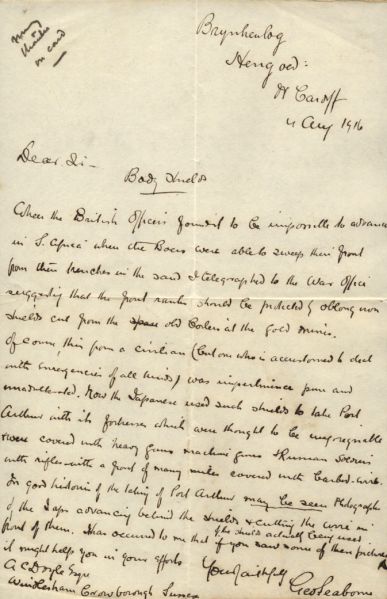 Many
thanks
on card
Brynhenlog
Hengoed
Nr Cardiff
4 Aug 1916
Dear Sir
Body Shields
When the British Officers found it to be impossible to advance
in S. Africa when the Boers were able to sweep their front
from their trenches in the sand I telegraphed to the War Office
suggesting that the front ranks should be protected by oblong iron
shields cut from the old boilers at the gold mines.
Of course, this from a civilian (but one who is accustomed to deal
with emergencies of all kinds) was impertinence pure and
unadulterated. Now the Japanese used such shields to take Port
Arthur with its fortresses which were thought to be impregnable
& were covered with heavy guns machine guns & Russian soldiers
with rifles with a front of many miles covered with barbed wire.
In good histories of the taking of Port Arthur may be seen photographs
of the Japs advancing behind the shields & cutting the wire in
front of them. It has occurred to me that if you saw some of these pictures
of the shields actually being used
it might help you in your efforts
Yours faithfully
A C Doyle Esqre
Geo Seaborne
Windlesham Crowborough Sussex